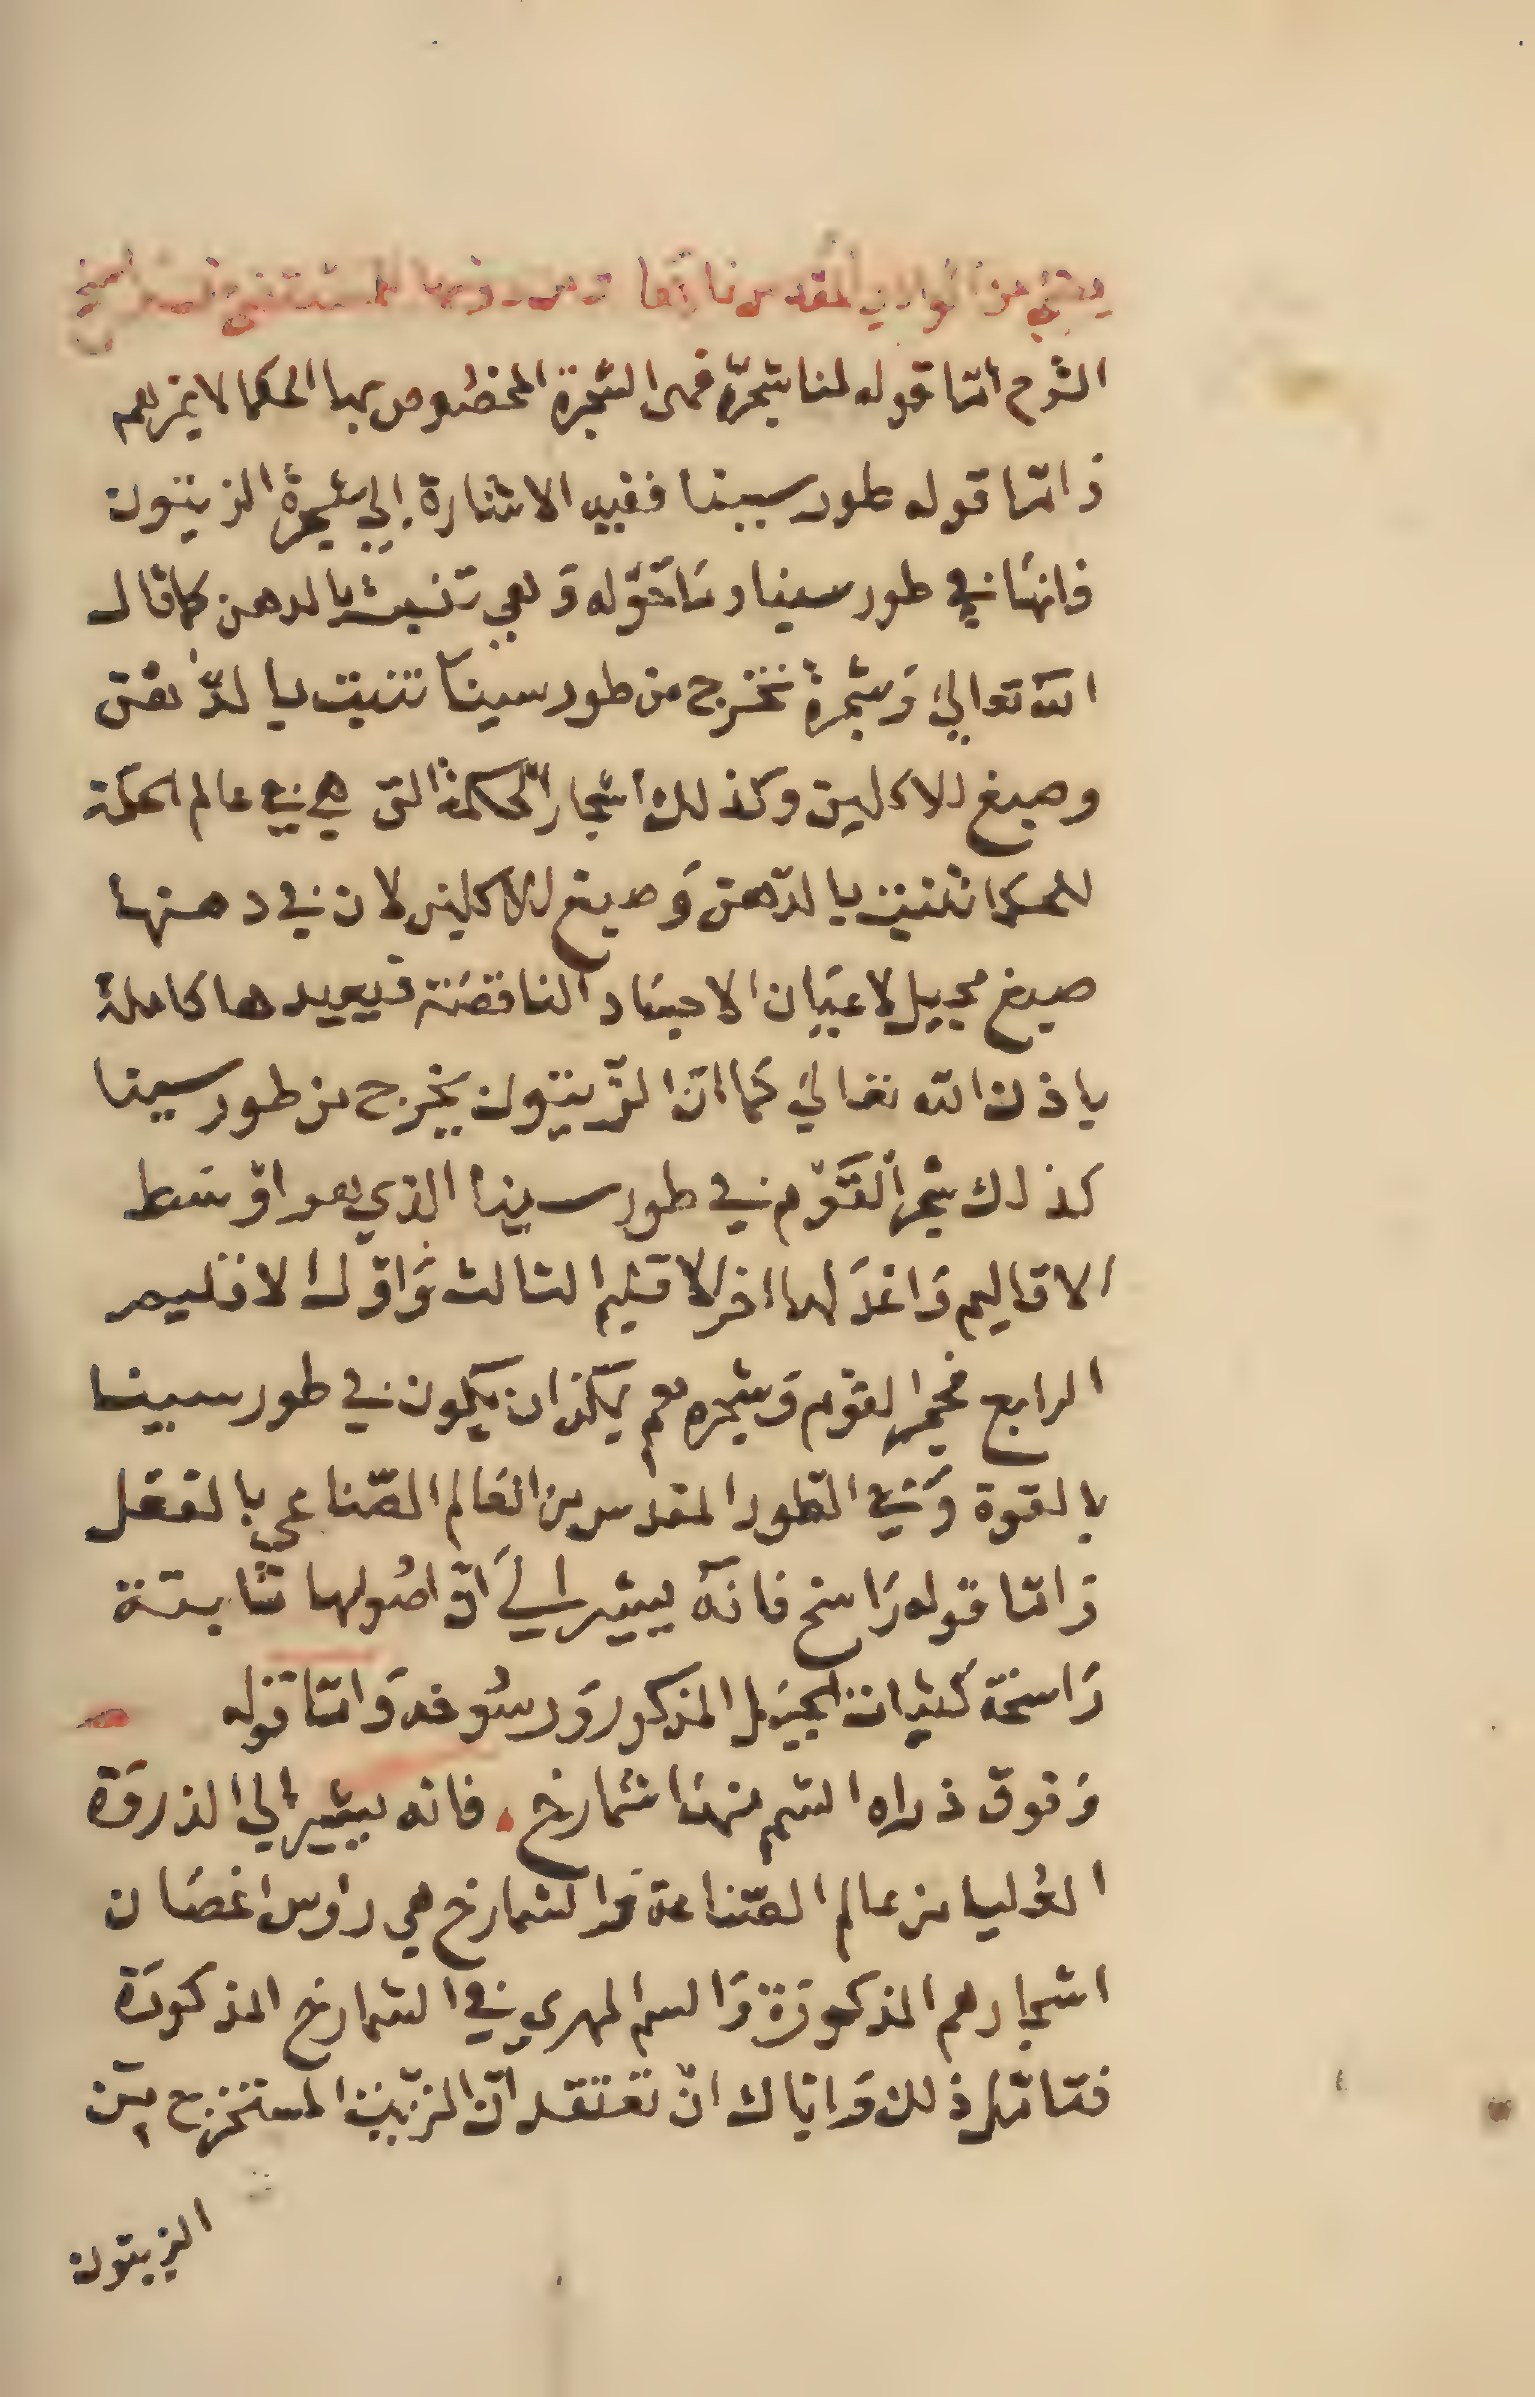 من الوادي المقدس نارها
الشرح امّا قوله لنا شجرة فهى الشجرة المخصوص بها الحكما لا غيرهم
وَامّا قوله طور سينا ففيه الاشارة إلي شجرة الزيتون
فانهَا في طور سينا ومَا حَوْله وَهي تنبت بالدهن كما قال
الله تعالي وَشجرة تخرج من طور سينا تنبت بالدّهن
وصبغ للاكلين وكذلك اشجار الحكمة التي هي في عالم الحكمة
للحكما تنبت بالدّهن وَصبغ للاكلين لان في دهنها
صبغ محيل لاعيَان الاجسَاد الناقصَة فيعيدها كاملة
باذن الله تعالي كما انّ الزّيتون يخرج من طور سينا
كذلك شجر الْقَوْم في طور سينا الذي هو اوْسَط
الاقاليم وَاعْدَلها اخر الاقليم الثالث وَاوّل الاقليم
الرابع فحجر القوْم وَشجرهم يمكن ان يكون في طور سينا
بالقوة وَفي الطور المقدس من العَالم الصّناعي بالفعْل
وَامّا قوله رَاسخ فانّهَ يشير إليَ انّ اصُولها ثابتة
رَاسخَة كثبات الجبَل المذكور وَرسُوخه وَامّا قوْله
وَفوق ذراه الشم منهَا شمارخ . فانه يشير الي الذروَة
العُليا من عالم الصّناعة وَالشمارخ هي راوس اغصَان
اشجارهم المذكورَة وَالسم المهري في الشمارخ المذكورَة
فتامّل ذلك وَايّاك انْ تعْتقد انّ الزّيت المستخرج من
الزيتون